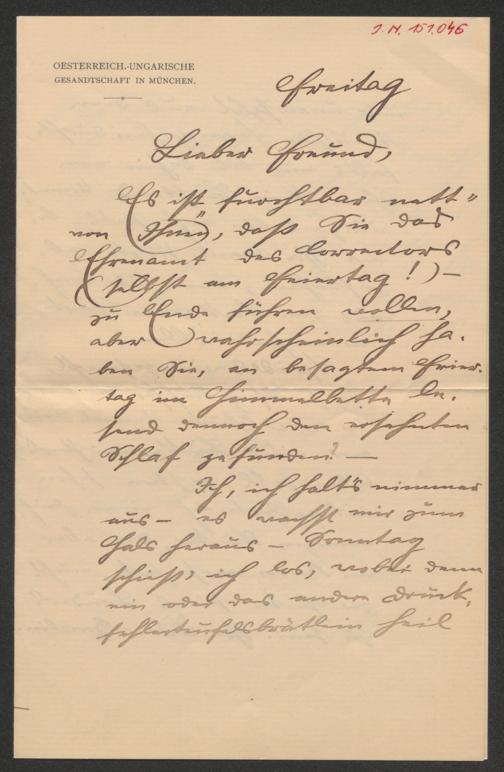 J. N. 151.046
OESTERREICH.-UNGARISCHE
GESANDTSCHAFT IN MÜNCHEN.
Freitag
Lieber Freund,
Es ist furchtbar nett"
von "Ihnen", daß Sie das
Ehrenamt des Correctors
(selbst am Feiertag!) –
zu Ende führen wollen,
aber wahrscheinlich ha-
ben Sie, an besagtem Feier-
tag im Himmelbette le-
send dennoch den ersehnten
Schlaf gefunden? —
Ich, ich halt's nimmer
aus – es wachst mir zum
Hals heraus – Sonntag
schieß' ich los, wobei denn
ein oder das andere Druck-
fehlerteufelsbrätlein heil